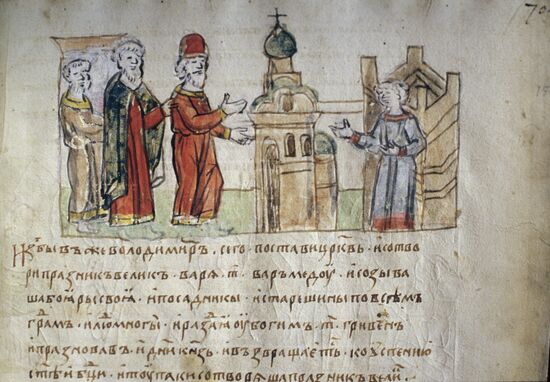 Избывъ же володимиръ · сего · постави црквь · и сотво
ри празникъ великъ · варя · т҃ · варъ медоу · и созыва
ша боꙗры своꙗ · и посадникы · и старешины по всѣмъ
градмъ · и люⷣ многы · и раздаꙗ оубогимъ · т҃ · гривенъ
и празновавъ · и҃ дни кнзь · и възвращаеть · ко успению
стѣи бци · и тоу паки сотворꙗша празникъ вели
70